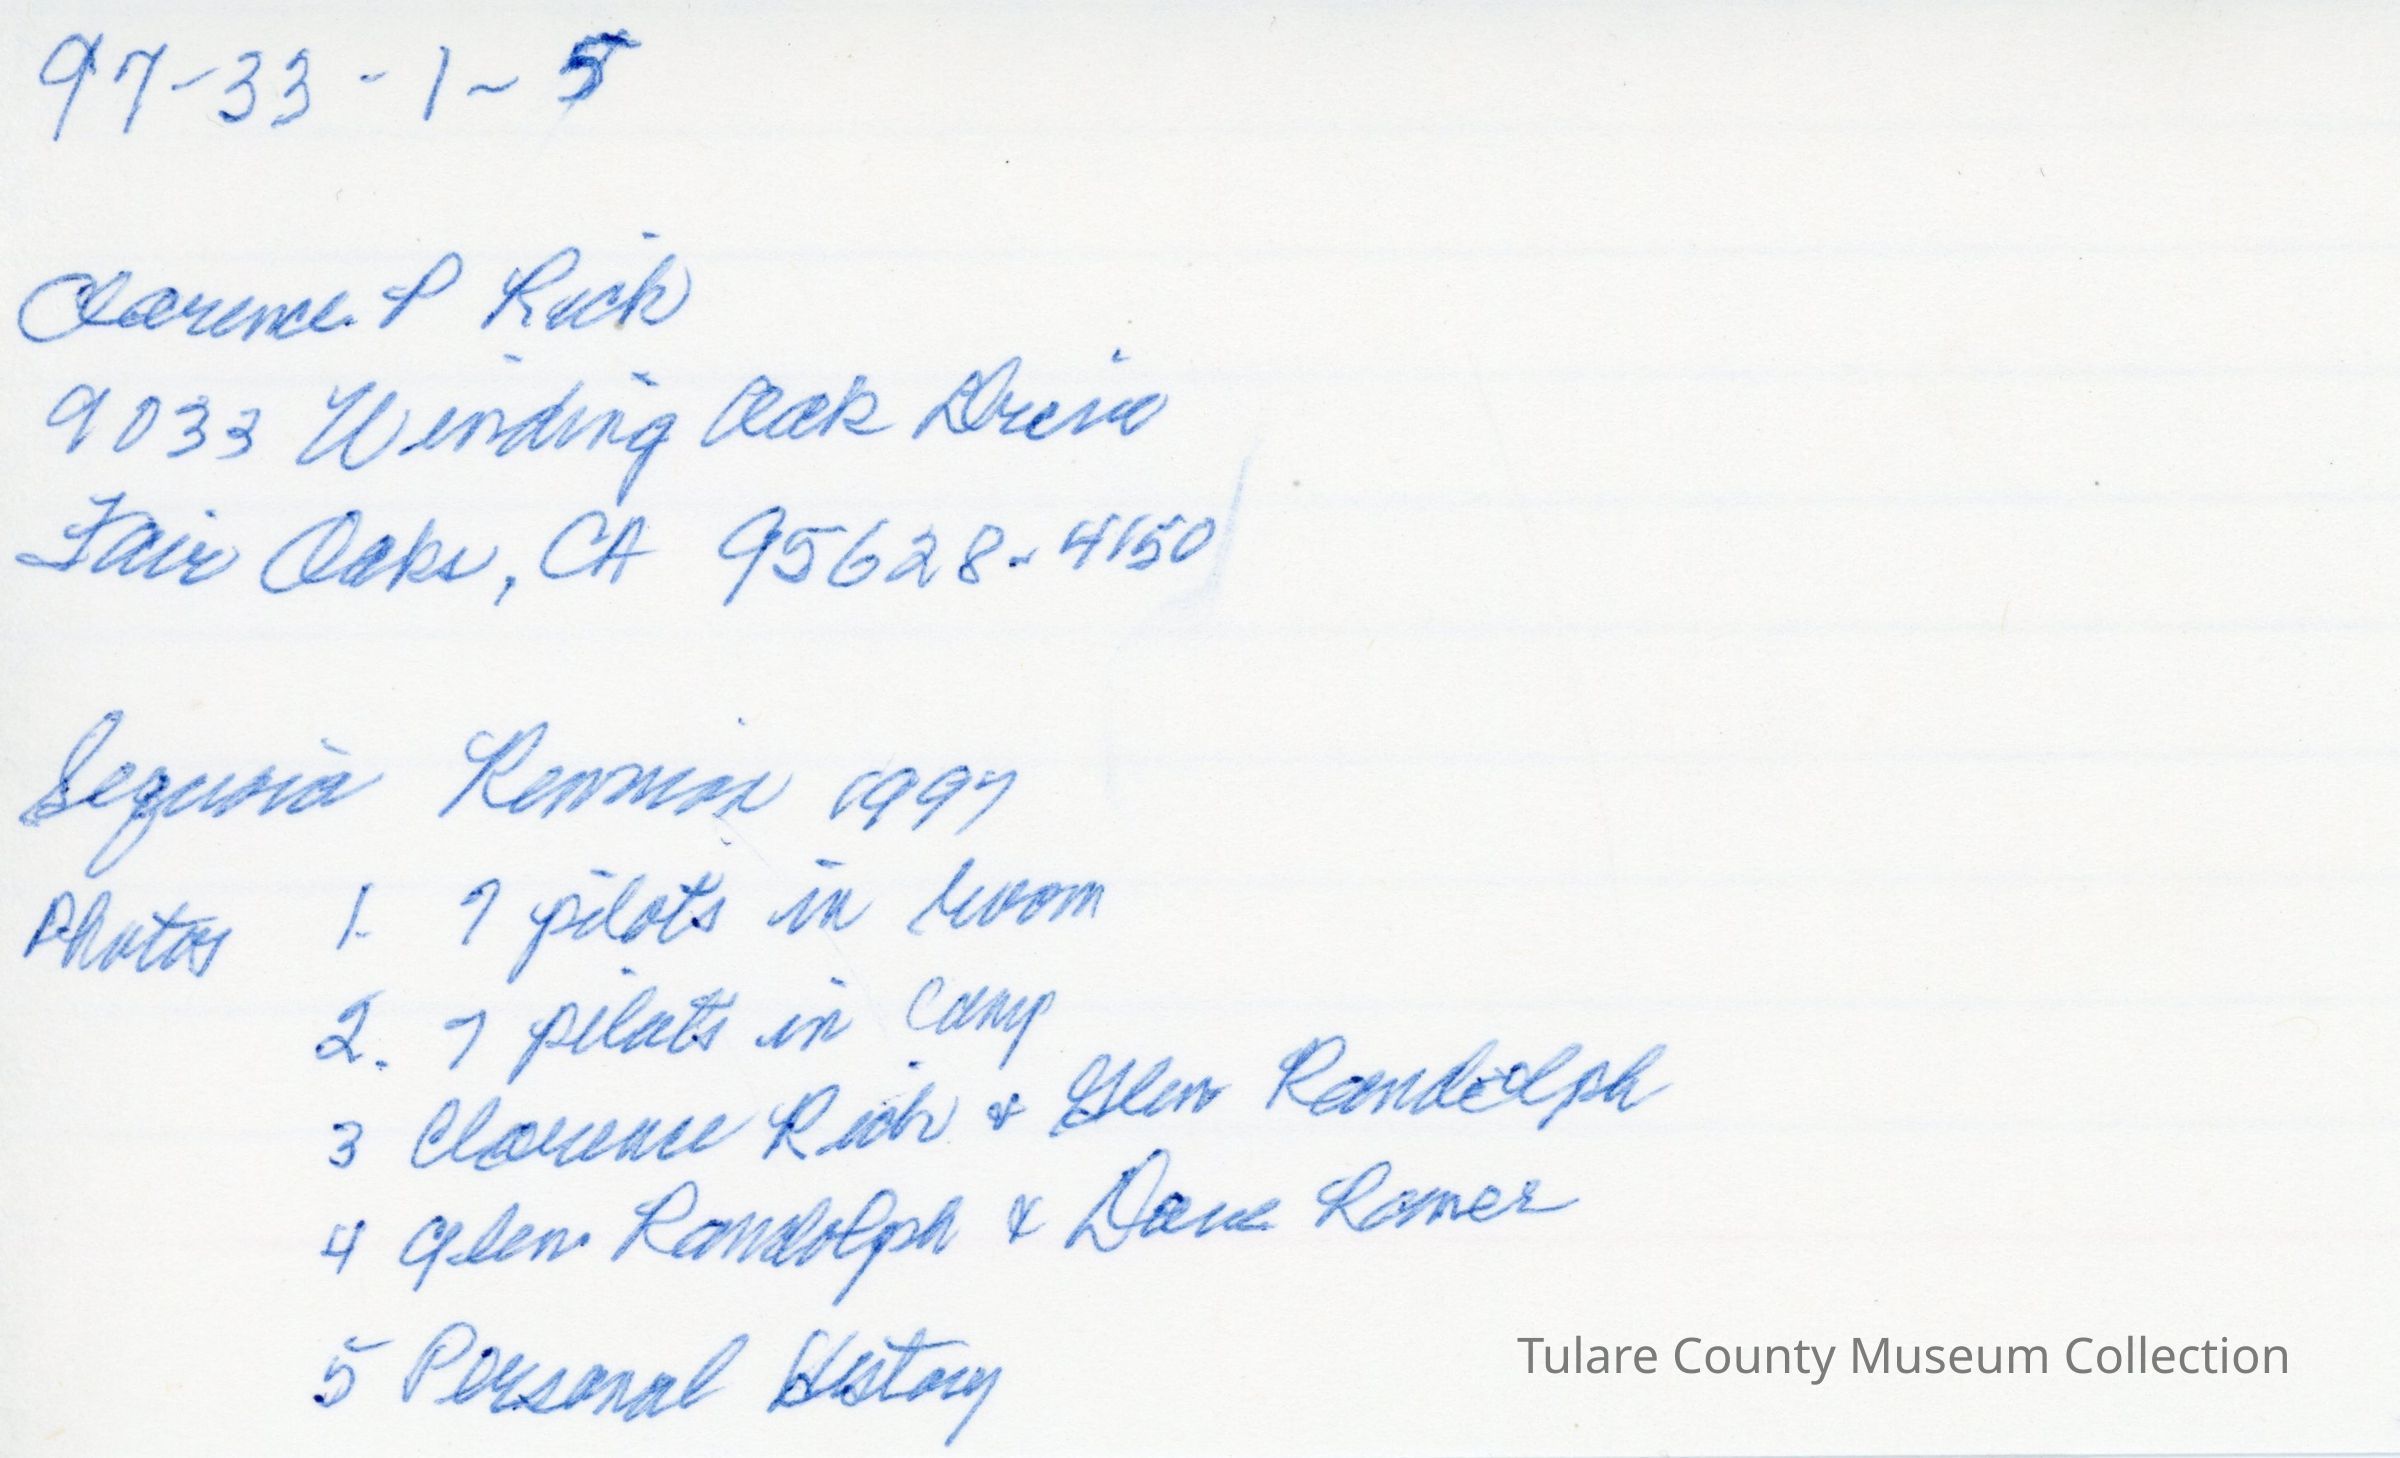 97-33-1-5
Clarence P Rich
9033 Winding Oak Drive
Fair Oaks, CA 95628-4150
Sequoia 1997
Photos 1. 7 pilots in room
2. 7 pilots in Camp
3 Clarence Rich & Glen Randolph
4 Glen Randolph & Dave Ramer
5 Personal History
Tulare County Museum Collection